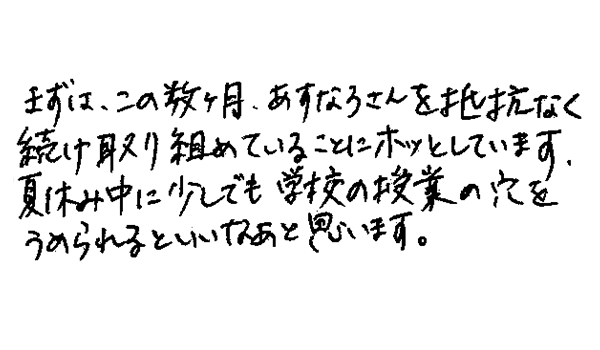 まずは、この数ヶ月、あすなろさんを抵抗なく
続け取り組めていることにホッとしています、
夏休み中に少しでも学校の授業の穴を
うめられるといいなあと思います。